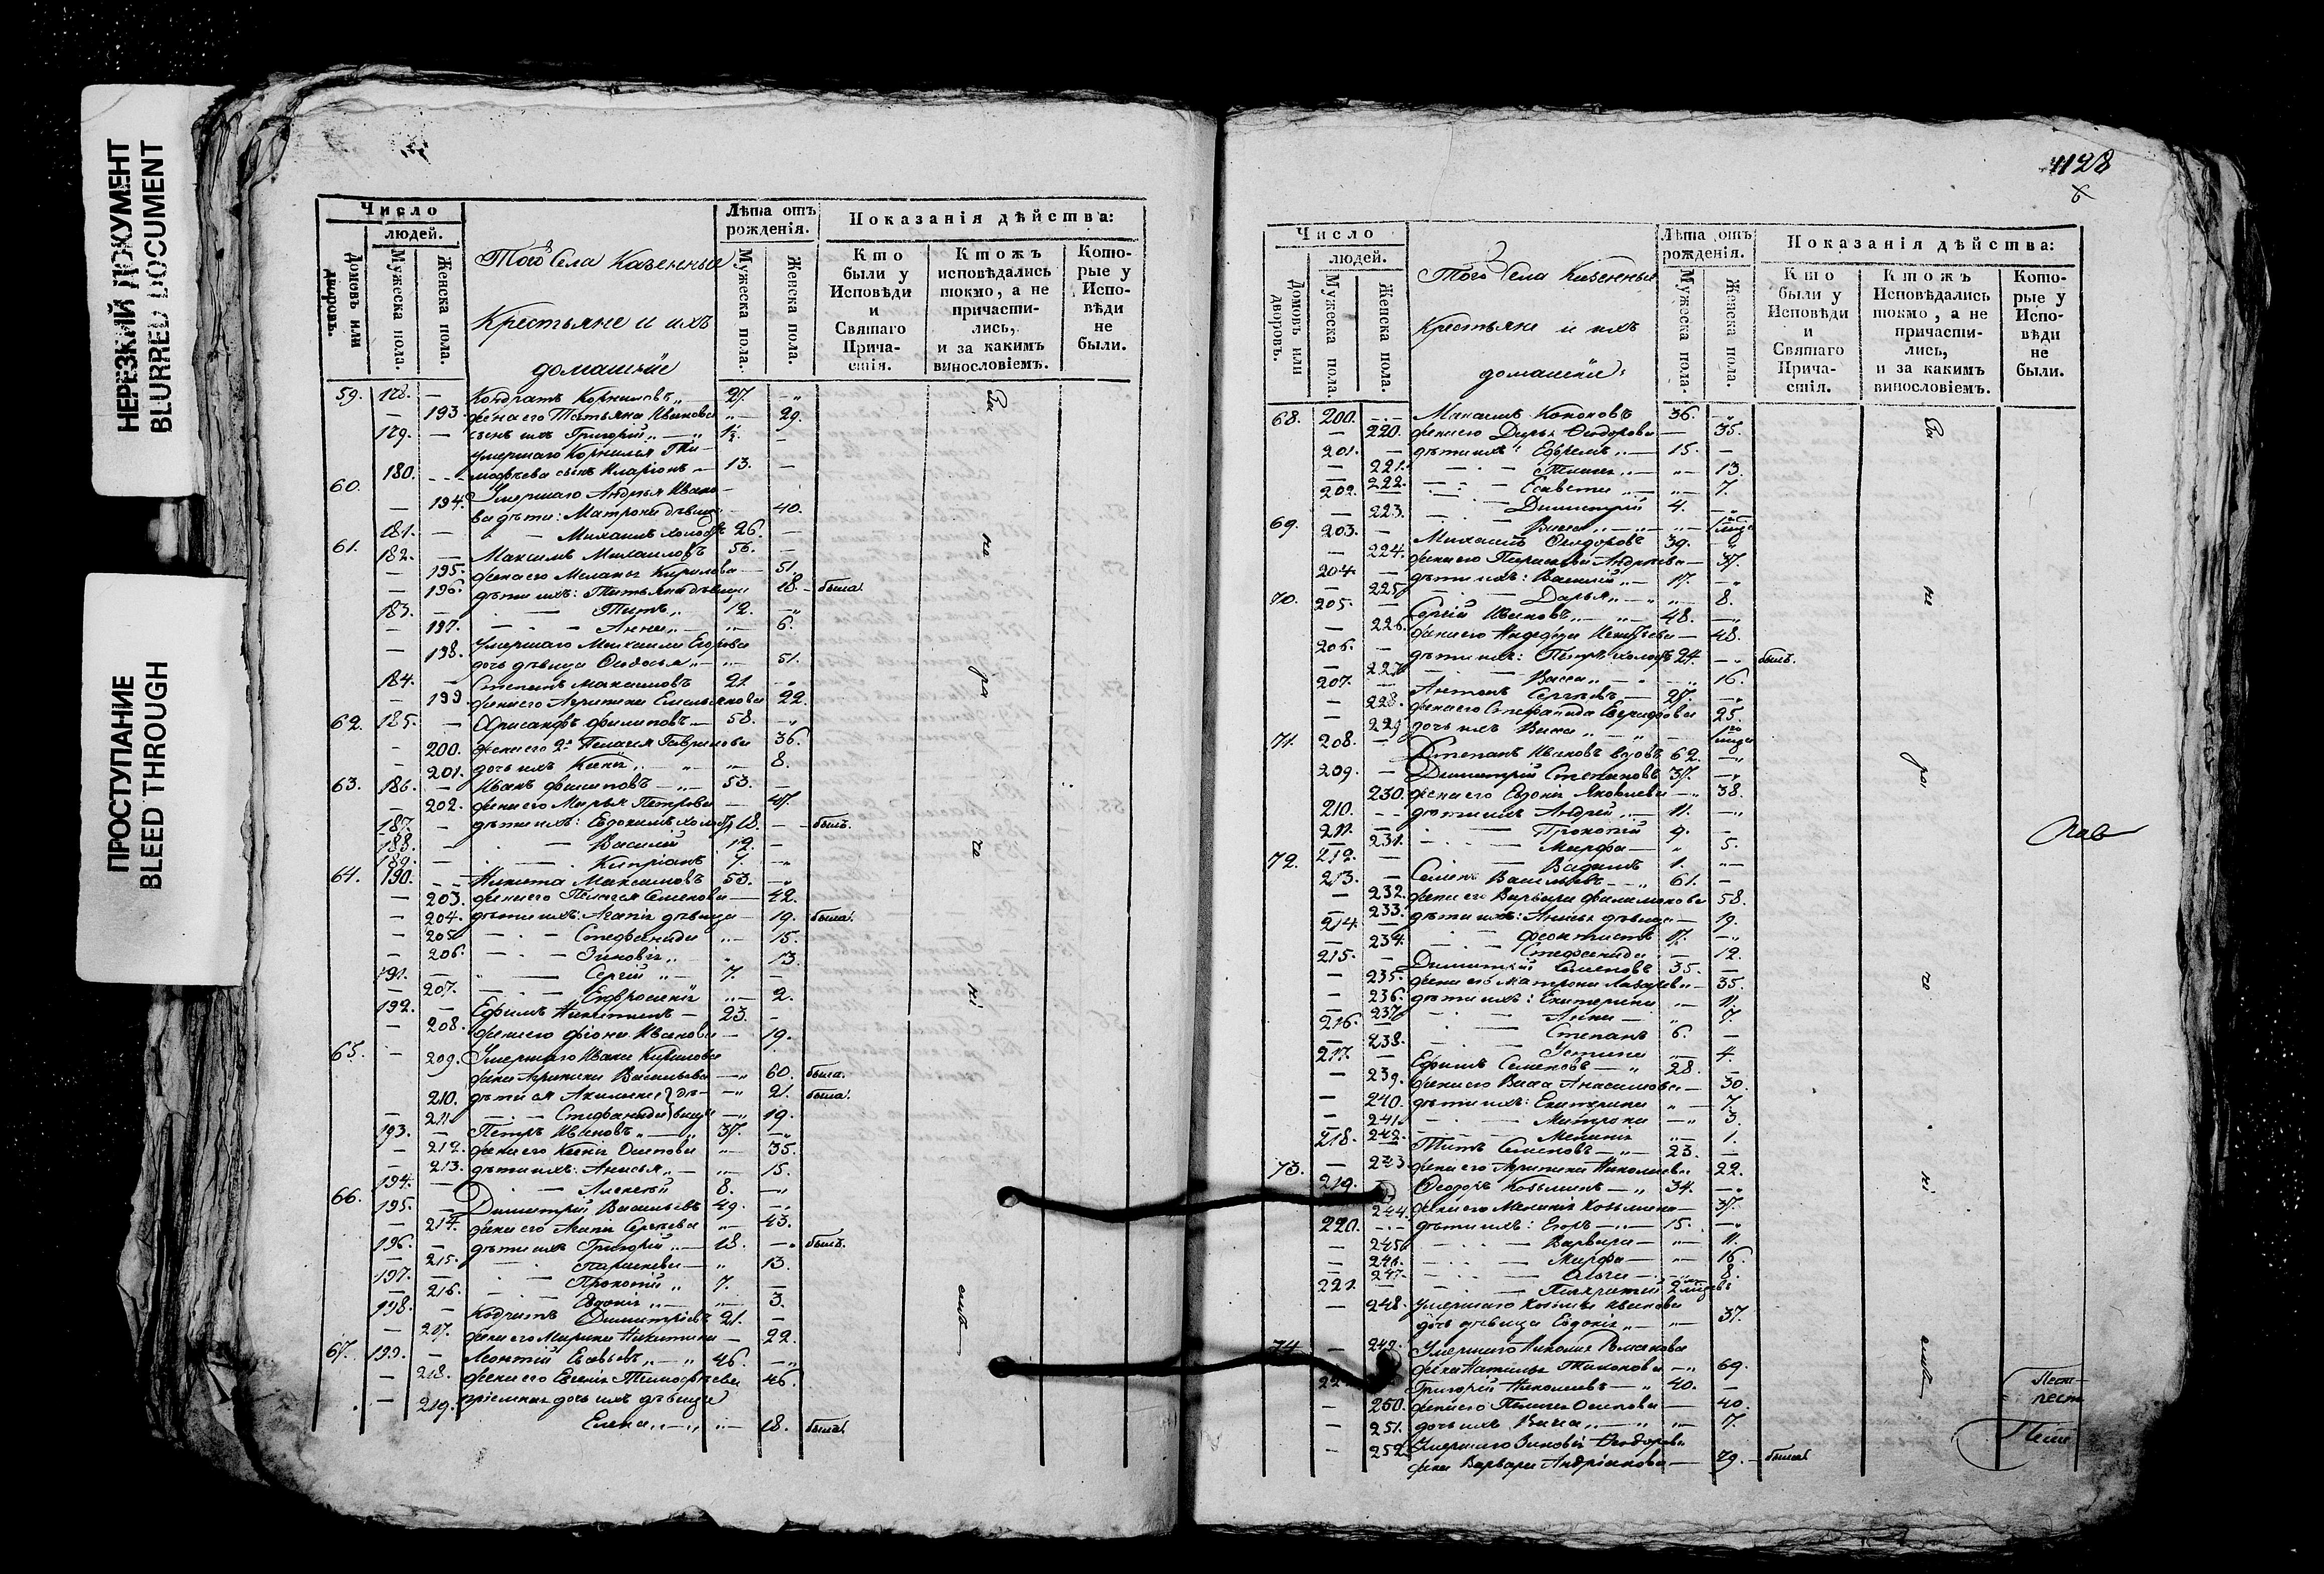 НЕРЕЗКИЙ ДОКУМЕНТ
BLURRED DOCUMENT
ПРОСТУПАНИЕ
BLEED THROUGH
Число
людей.
Домовъ или дворовъ.
Мужеска пола.
Женска пола.
Того Села Казенные
Крестьяне и ихъ
домашніе
Лѣта отъ рожденія.
Мужеска пола.
Женска пола.
Показанія дѣйства:
Кто были у Исповѣди и Святаго Причастія.
Ктожъ исповѣдались токмо, а не причастились, и за какимъ винословіемъ.
Которые у Исповѣди не были.
59. 178. — Кондратъ Корниловъ 27.
193. жена его Татьяна Иванова 29.
179. — сынъ ихъ Григорій
умершаго Корнилья Ти-
180. мофѣева сынъ Иларіонъ 13.
60. Умершаго Андрея Ивано-
194. ва дѣти: Матрона дѣвица 40.
181. — Михаилъ холостъ 26.
61. 182. — Максимъ Михаиловъ 56.
195. жена его Меланья Кирилова 51.
196. дѣти ихъ: Татьяна дѣвица 18. была.
183. — Титъ 12.
197. Анна 6.
Умершаго Михаила Егорова
198. дочь дѣвица Ѳеодосья 51.
184. — Степанъ Максимовъ 21.
199. жена его Агрипина Емельянова 22.
62. 185. — Хрисанфъ Филиповъ 58.
200. жена его 2я Пелагея Гаврилова 36.
201. дочь ихъ Ксенія 8.
63. 186. — Иванъ Филиповъ 53.
202. жена его Марья Петрова 47.
187. — дѣти ихъ: Евдокимъ холостъ 18. былъ.
188. — Василій 12.
189. — Кипріанъ 7.
64. 190. Никита Максимовъ 53.
203. жена его Пелагея Семенова 42.
204. дѣти ихъ: Агапія дѣвица 19. была.
205. Стефанида 15.
206. Зиновія 13.
191. — Сергій 7.
207. Евфросинія 2.
192. — Ефимъ Никитинъ 23.
208. жена его Фіона Иванова 19.
65. 209. Умершаго Ивана Кирилова
жена Агрипина Васильева 60. была.
210. дѣти ея Акилина дѣ- 21. была.
211. Стефанида вицы 19.
193. — Петръ Ивановъ 37.
212. жена его Ксенія Осипова 35.
213. дѣти ихъ: Анисья 15.
194. — Алексѣй 8.
66. 195. — Димитрій Васильевъ 49.
214. жена его Агапія Сергѣева 43.
196. — дѣти ихъ Григорій 18. былъ.
215. Параскева 13.
197. — Прокопій 7.
216. Евдокія 3.
198. — Кодратъ Димитріевъ 21.
217. жена его Марина Никитина 22.
67. 199. — Леонтій Евсѣевъ 46.
218. жена его Евгенія Тимофѣева 46.
219. пріемная дочь ихъ дѣвица
Елена 18. была.
За
не
ра
че
ні
емъ
128
Число
людей.
Домовъ или дворовъ.
Мужеска пола.
Женска пола.
Того Села Казенные
Крестьяне и ихъ
домашніе:
Лѣта отъ рожденія.
Мужеска пола.
Женска пола.
Показанія дѣйства:
Кто были у Исповѣди и Святаго Причастія.
Ктожъ Исповѣдались токмо, а не причастились, и за какимъ винословіемъ.
Которые у Исповѣди не были.
68. 200. Максимъ Кононовъ 36.
220. жена его Дарья Ѳеодорова 35.
201. — дѣти ихъ: Ефремъ 15.
221. 13.
222. Есавета 7.
202. — Димитрій 4.
223. Васса
69. 203. — Михаилъ Ѳеодоровъ 39.
224. жена его Параскева Андреева 37.
204. — дѣти ихъ: Василій 17.
225. Дарья 8.
70. 205. — Сергій Ивановъ 48.
226. жена его 48.
206. — дѣти ихъ: Петръ холостъ 24. былъ.
227. Васса 16.
207. — Антонъ Сергѣевъ 27.
228. жена его Стефанида 25.
229. дочь ихъ Васса
71. 208. — Степанъ Ивановъ вдовъ 62.
209. — Димитрій Степановъ 37.
230. жена его Евдокія Яковлева 38.
210. дѣти ихъ Андрей 11.
211. Прокопій 9.
231. Марфа 5.
212. 1.
72. 213. — Семенъ Васильевъ 61.
232. жена его Варвара Филимонова 58.
233. дѣти ихъ: Анисья дѣвица 19.
214. — Феоктистъ 17.
234. Стефанида 12.
215. — Димитрій Семеновъ 35.
235. жена его Матрона Лазарева 35.
236. дѣти ихъ: Екатерина 11.
237. Анна 7.
216. — Степанъ 6.
238. Устинья 4.
217. — Ефимъ Семеновъ 28.
239. жена его Васса Анисимова 30.
240. дѣти ихъ: Екатерина 7.
241. Матрона 3.
242. Меланія 1.
218. Титъ Семеновъ 23.
243. жена его Агрипина Николаева 22.
73. 219. Ѳеодоръ Козьминъ 34.
244. жена его Меланія Козьмина 37.
220. дѣти ихъ: Егоръ 15.
245. Варвара 11.
246. Марфа 16.
247. Ольга 8.
221. Панкратій
248. Умершаго Козьмы Иванова
дочь дѣвица Евдокія 37.
74. 249. Умершаго Николая
жена Наталья Тихонова 69.
Григорій Николаевъ 40.
250. жена его Пелагея Осипова 40.
251. дочь ихъ Васса 7.
252. Умершаго Зиновія Ѳеодорова
жена Варвара Андріанова 79. была
За
не
ра
че
ні
емъ